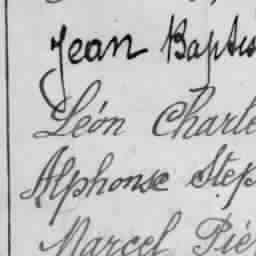 Jean Baptis
Léon Charle
Alphonse Step
Marcel Pie